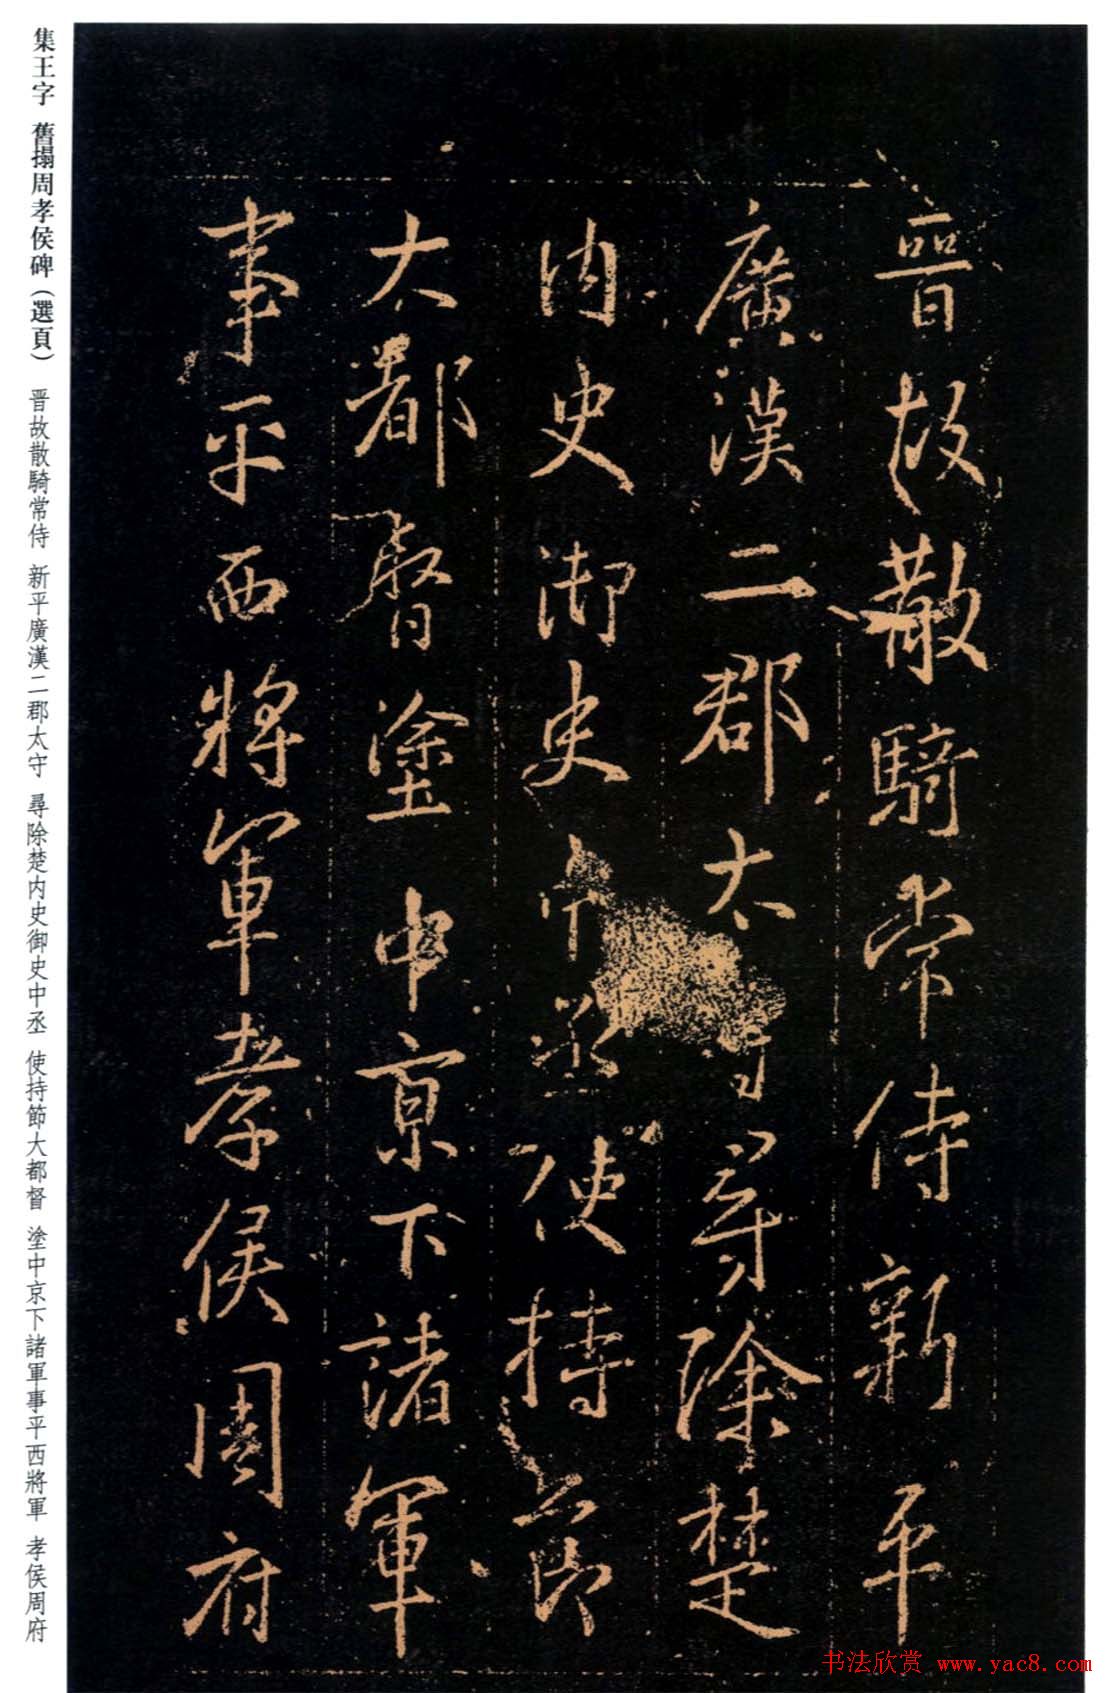 晉故散騎常侍新平
廣漢二郡太守尋除楚
内史御史中丞使持節
大都督塗中京下諸軍
事平西將軍孝侯周府
集王字 舊搨周孝侯碑（選頁） 晋故散騎常侍 新平廣漢二郡太守 尋除楚内史御史中丞 使持節大都督 塗中京下諸軍事平西將軍 孝侯周府
书法欣赏 www.yac8.com